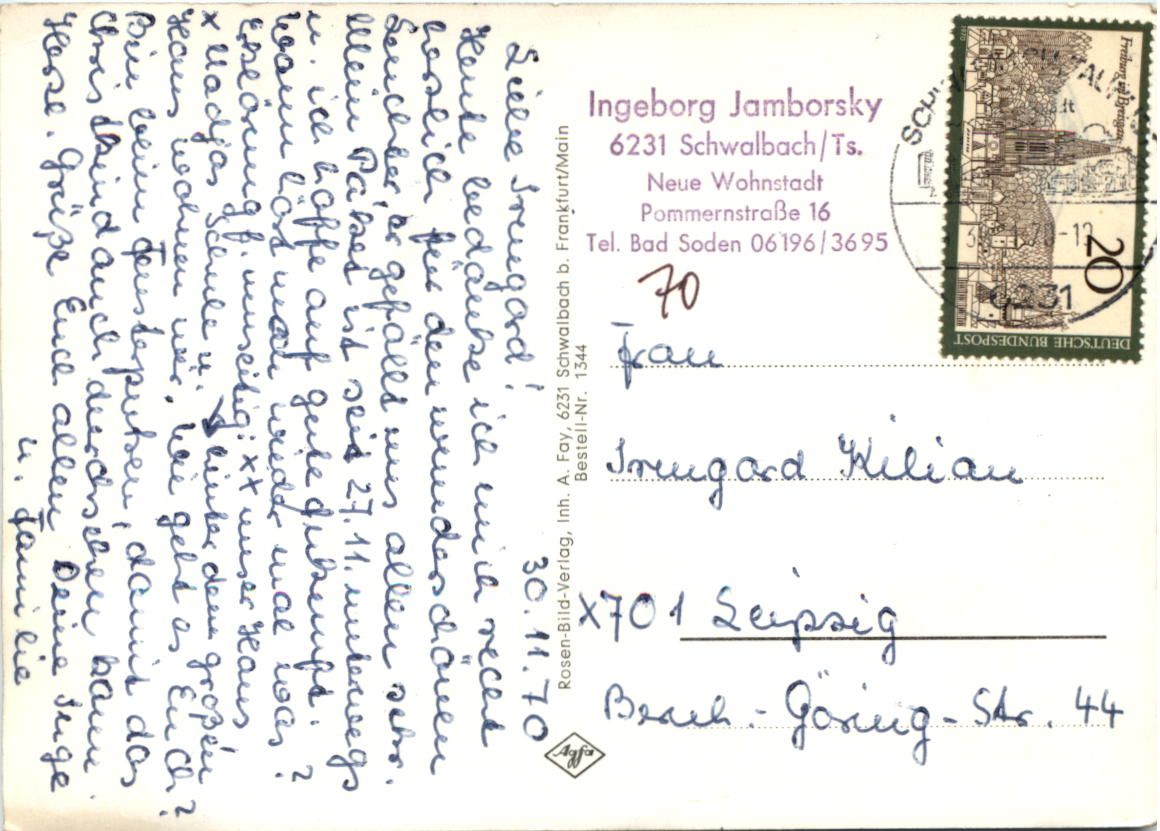 30.11.70
Liebe Irmgard!
Heute bedanke ich mich recht
herzlich für den wunderschönen
Leuchter, er gefällt uns allen sehr.
Mein Päckst ist seit 27.11. unterwegs
u. ich hoffe auf gute Ankunft.
Wann hört man wieder mal was?
Erklärung f. umseitig: xx unser Haus
x Nadjas Schule u. hinter dem großen
Haus wohnen wir. Wie geht es Euch?
Bin beim Fensterputzen, damit das
Christkind auch durchsehen kann.
Grüße Euch allen Deine Inge
u. Familie
Rosen-Bild-Verlag, Inh. A. Fay, 6231 Schwalbach b. Frankfurt/Main
Bestell-Nr. 1344
Agfa
Ingeborg Jamborsky
6231 Schwalbach/Ts.
Neue Wohnstadt
Pommernstraße 16
Tel. Bad Soden 06196/3695
70
Freiburg im Breisgau
20
DEUTSCHE BUNDESPOST
1970
6231
Frau
Irmgard Kilian
X701 Leipzig
Bernh.-Göring-Str. 44